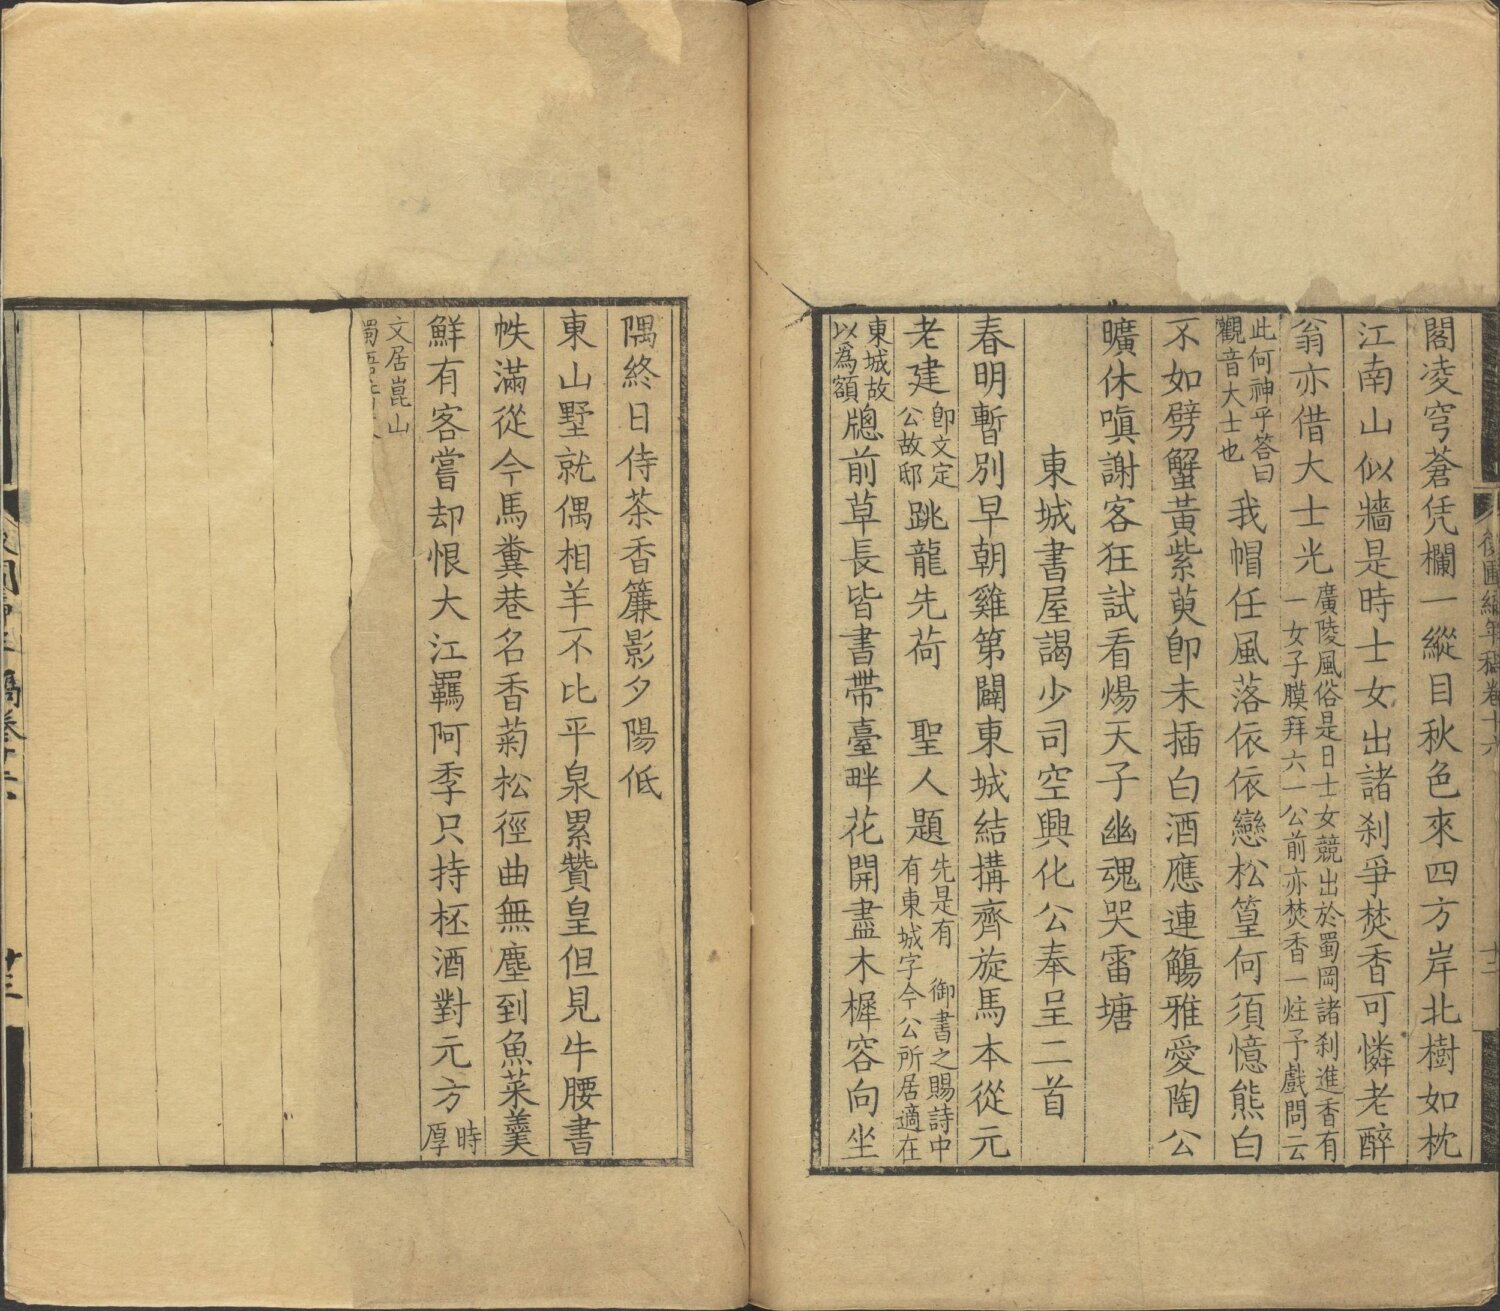 閣凌穹蒼凭欄一縱目秋色來四方岸北樹如枕
江南山似牆是時士女出諸刹爭焚香可憐老醉
翁亦借大士光廣陵風俗是日士女競出於蜀岡諸刹進香有一女子膜拜六一公前亦焚香一炷予戲問云
此何神乎答曰觀音大士也我帽任風落依依戀松篁何須憶熊白
不如劈蟹黃紫萸卽未插白酒應連觴雅愛陶公
曠休嗔謝客狂試看煬天子幽魂哭雷塘
東城書屋謁少司空興化公奉呈二首
春明暫別早朝雞第闢東城結搆齊旋馬本從元
老建卽文定公故邸跳龍先荷 聖人題先是有 御書之賜詩中有東城字今公所居適在
東城故以爲額牕前草長皆書帶臺畔花開盡木樨容向坐
隅終日侍茶香簾影夕陽低
東山墅就偶相羊不比平泉累贊皇但見牛腰書
帙滿從今馬糞巷名香菊松徑曲無塵到魚菜羹
鮮有客嘗却恨大江羈阿季只持杯酒對元方時厚
文居崑山
後圃編年稿卷十六
十二
稿卷十六
十三